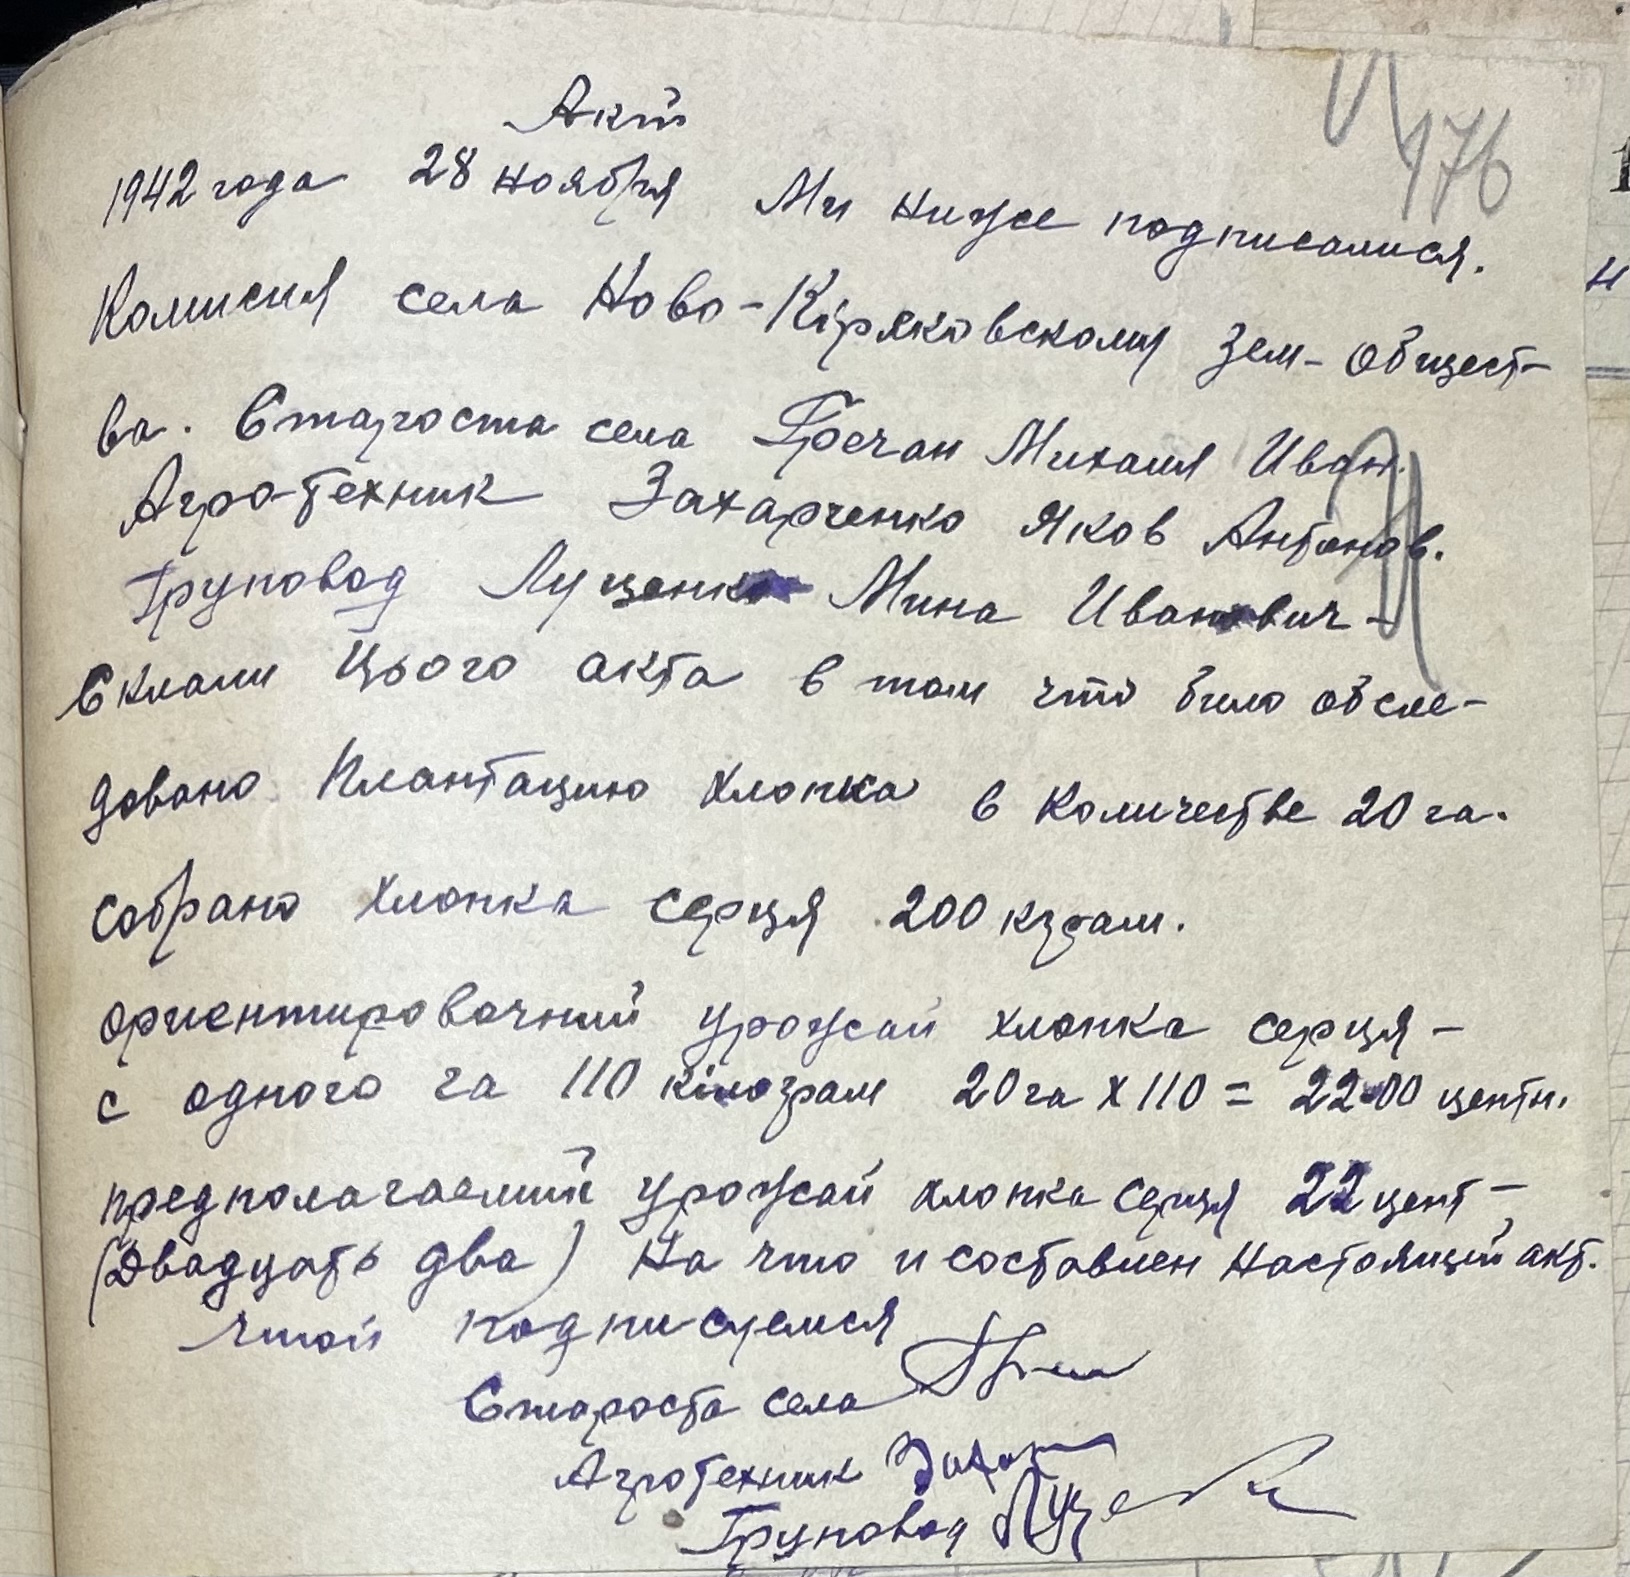 176
Акт
1942 года 28 ноября Ми ниже подписалися.
Комисия села Ново-Кіряковскому Зем-Общест-
ва. Староста села Гречан Михаил Иван.
Агро-Техник Захарченко Яков Антонов.
Груповод Луценко Мина Иванович-
Склали Цього акта в том что било обсле-
довано Плантацию хлопка в Количестве 20 га.
собрано хлопка серця 200 кграм.
ориентировачний урожай хлопка серця-
с одного га 110 кілограм 20 га х 110 = 22-00 центн.
предполагаемий урожай хлопка серця 22 цент-
(Двадцать два) На что и составлен Настоящий акт.
подписуемся
Староста села
Агротехник Захар
Груповод Луце